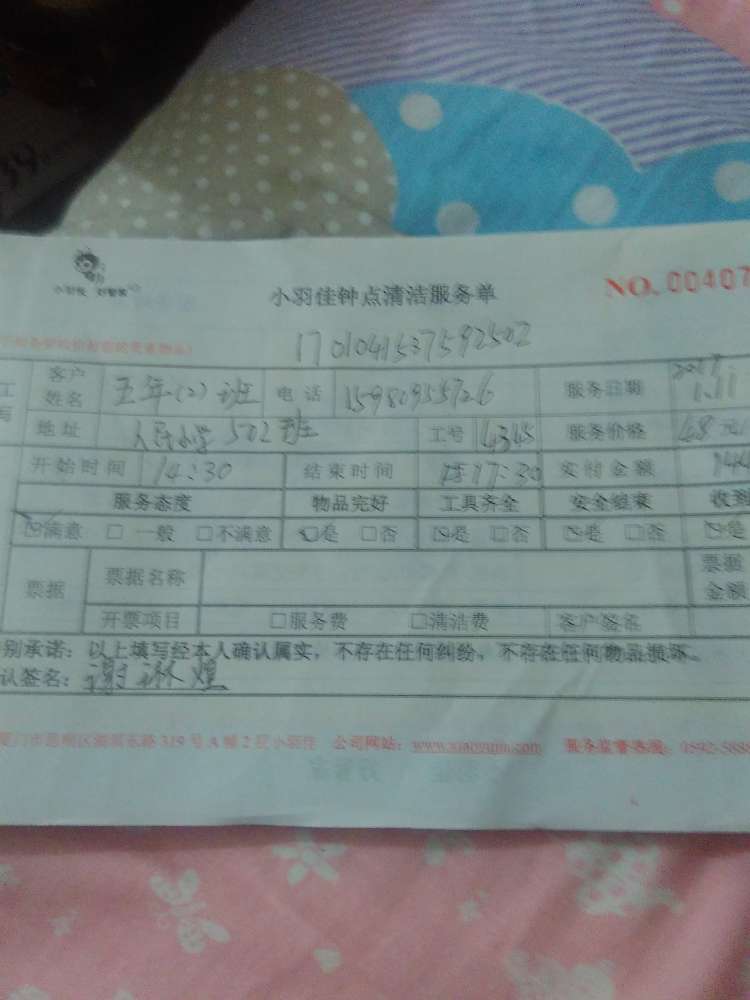 小羽佳 好管家
小羽佳钟点清洁服务单 NO. 00407
1701041537592502
客户姓名 五年(2)班 电话 15980955726 服务日期 2017 1.11
地址 人民小学502班 工号 4345 服务价格 48元
开始时间 14:30 结束时间 17:30 实付金额 144
服务态度 物品完好 工具齐全 安全结束
满意 □ 一般 □不满意 是 □否 是 □否 是 □否 是
票据 票据名称 票据金额
开票项目 □服务费 □清洁费 客户签名
别承诺：以上填写经本人确认属实，不存在任何纠纷，不存在任何物品损坏。
认签名：谢
319号A幢2层小羽佳 公司网站：www.xiaoyujia.com 服务监督热线：0592-5888